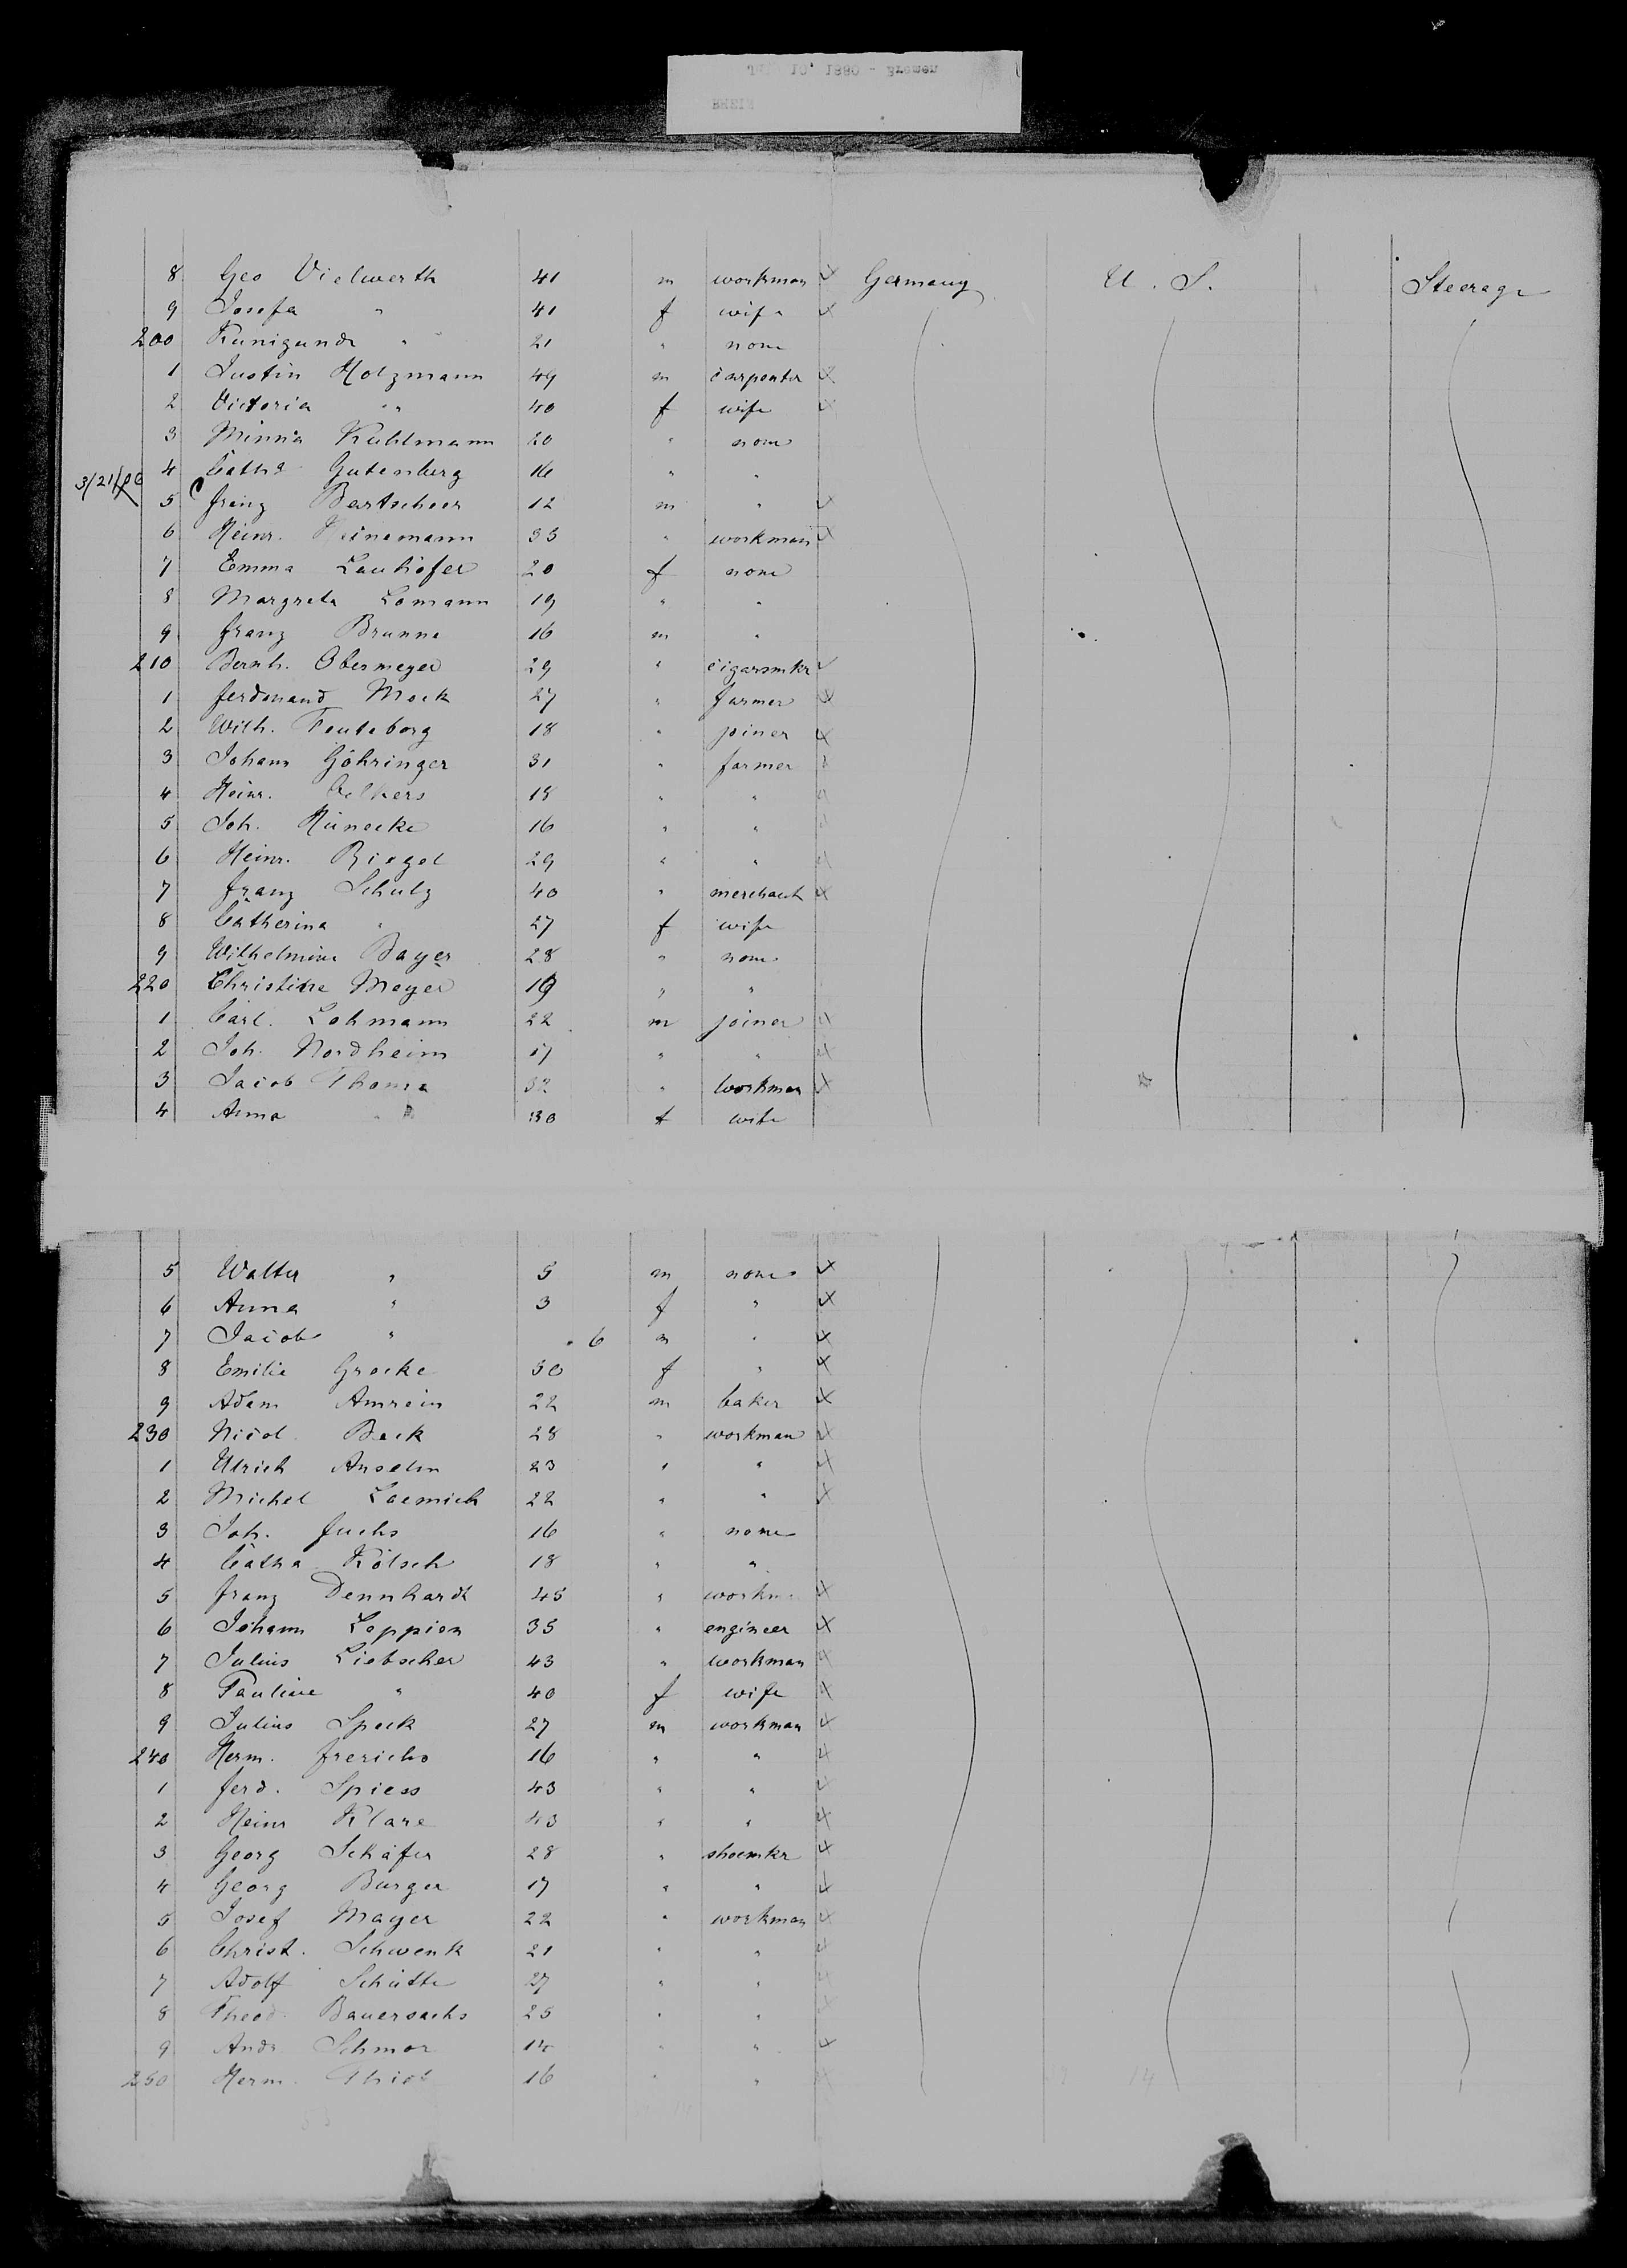 10, 1890 - Bremen
8 Geo Vielwerth 41 m workman x Germany U. S. Steerage
9 Josefa " 41 f wife x
200 Kunigunde " 21 " none
1 Justin Holzmann 49 m carpenter x
2 Victoria " 40 f wife x
3 Minna Kuhlmann 20 " none
4 Catha Gutenberg 16 " "
3/21/
5 franz Bertscheer 12 m " x
6 Heinr. Heinemann 33 " workman x
7 Emma Lauhöfer 20 f none
8 Margreta Lomann 19 " "
9 franz Brunne 16 m "
210 Bernh. Obermeyer 29 " cigarmkr x
1 ferdinand Mock 27 " farmer x
2 Wilh. Teuteborg 18 " joiner x
3 Johann Göhringer 31 " farmer x
4 Heinr. Oelkers 18 " " x
5 Joh. Hünecke 16 " " x
6 Heinr. Riegel 29 " " x
7 franz Schulz 40 " merchant x
8 Catherina " 27 f wife
9 Wilhelmine Bayer 28 " none
220 Christine Meyer 19 " "
1 Carl. Lohmann 22 m joiner x
2 Joh. Nordheim 17 " " x
3 Jacob Thoma 32 " workman x
4 Anna " 30 f wife
5 Walter " 5 m none x
6 Anna " 3 f " x
7 Jacob " . 6 m " x
8 Emilie Grocke 50 f " x
9 Adam Amrein 22 m baker x
230 Nicol. Beck 28 " workman x
1 Ulrich Anselm 23 " " x
2 Michel Laemich 22 " " x
3 Joh. fuchs 16 " none
4 Catha Kölsch 18 " "
5 franz Dennhardt 45 " workm x
6 Johann Loppion 35 " engineer x
7 Julius Liebscher 43 " workman x
8 Pauline " 40 f wife x
9 Julius Speck 27 m workman x
240 Herm. frerichs 16 " " x
1 ferd. Spiess 43 " " x
2 Heinr Klare 43 " " x
3 Georg Schäfer 28 " shoemkr x
4 Georg Burger 17 " " x
5 Josef Mayer 22 " workman x
6 Christ. Schwenk 21 " " x
7 Adolf Schütte 27 " " x
8 Theod. Bauersachs 25 " " x
9 Andr. Schmor " " x
250 Herm. 16 " " x